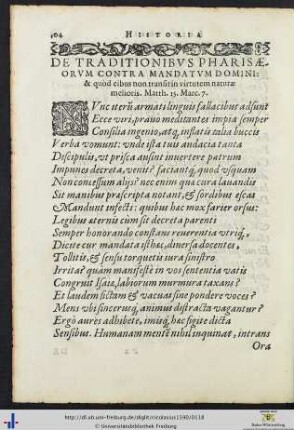 104 HISTORIA
DE TRADITIONIBVS PHARISÆ-
ORVM CONTRA MANDATVM DOMINI:
& quòd cibus non transit in virtutem naturæ
melioris. Matth. 15. Marc. 7.
NVnc iterũ armati linguis fallacibus adsunt
Ecce viri, prauo meditantes impia semper
Consilia ingenio, atq́, inflatis talia buccis
Verba vomunt: vnde ista tuis audacia tanta
Discipulis, vt prisca ausint inuertere patrum
Impunes decreta, venit? factantq́, quod vsquam
Non concessum alijs? nec enim qua cura lauandi
Sit manibus præscripta notant, & sordibus escas
Mandunt infecti: quibus hæc mox seruator orsus:
Legibus æternii cùm sit decreta parenti
Semper honorando constans reuerentia vtriq́,
Dicite cur mandata istæc, diuersa docentes,
Tollitis, & sensu torquetis iura sinistro
Irrita? quàm manifestè in vos sententia vatis
Congruit Isaiæ, labiorum murmura taxans?
Et laudem fictam & vacuas sine pondere voces?
Mens vbi sinceruq́, animus distracta vagantur?
Ergò aures adhibete, imisq́, hæc figite dicta
Sensibus. Humanam mentẽ nihil inquinat, intrans
Ora
http://dl.ub.uni-freiburg.de/diglit/nicolasius1590/0118
© Universitätsbibliothek Freiburg